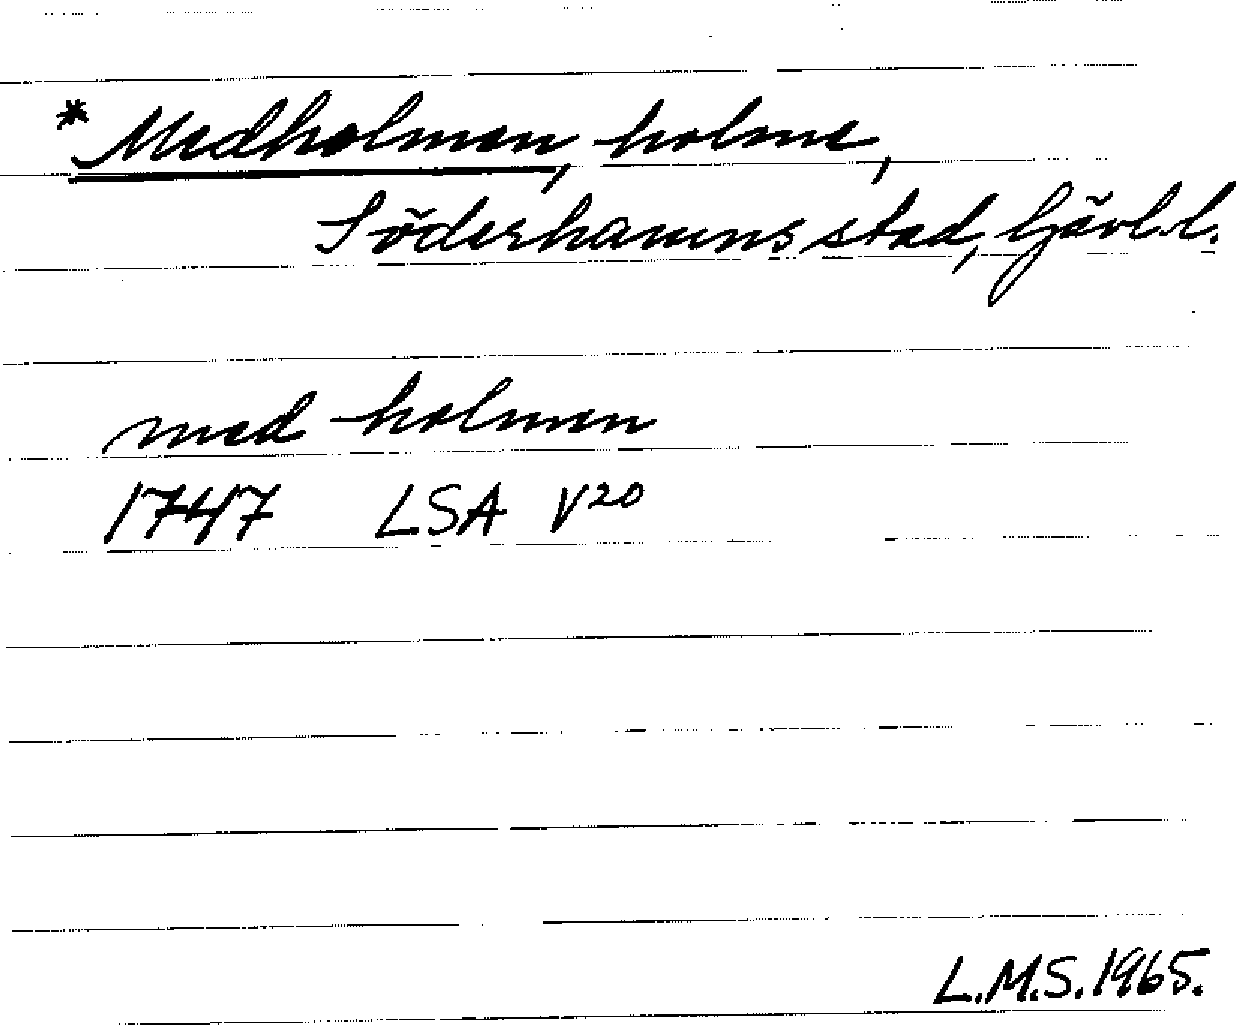 * Medholmen, holme,
Söderhamns stad, Gävl.l.
med holmen
1747 LSA V20
L.M.S. 1965.